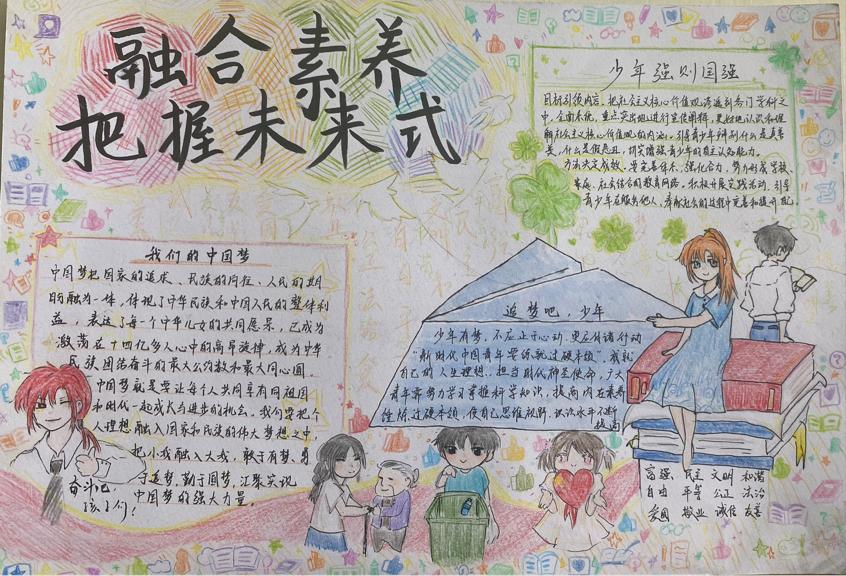 融合素养
把握未来式
少年强则国强
目标引领内容。把社会主义核心价值观渗透到各门学科之
中,全面系统、重点突出地进行宣传阐释,更好地认识和理
解社会主义核心价值观的内涵。引导青少年辨别什么是真善
美,什么是假恶丑,切实增强青少年的自主认知能力。
方法决定成效。要完善体系,强化合力,努力形成学校、
家庭、社会结合的教育网络。积极开展实践活动,引导
青少年在服务他人、奉献社会的过程中完善和提升自己
我们的中国梦
中国梦把国家的追求、民族的向往、人民的期
盼融为一体,体现了中华民族和中国人民的整体利
益,表达了每一个中华儿女的共同愿景,已成为
激荡在十四亿多人心中的高昂旋律,成为中华
民族团结奋斗的最大公约数和最大同心圆。
中国梦就是要让每个人共同享有同祖国
和时代一起成长与进步的机会。我们要把个
人理想融入国家和民族的伟大梦想之中,
把小我融入大我,敢于有梦、勇
于追梦、勤于圆梦,汇聚实现
中国梦的强大力量。
奋斗吧,
孩子们!
追梦吧,少年
少年有梦,不应止于心动,更应付诸行动
"新时代中国青年要练就过硬本领",我就
自己的人生理想,担当时代神圣使命,广大
青年需努力学习掌握科学知识,提高内在素养
锤炼过硬本领,使自己思维视野、认识水平不断
提高
富强 民主 文明 和谐
自由 平等 公正 法治
爱国 敬业 诚信 友善